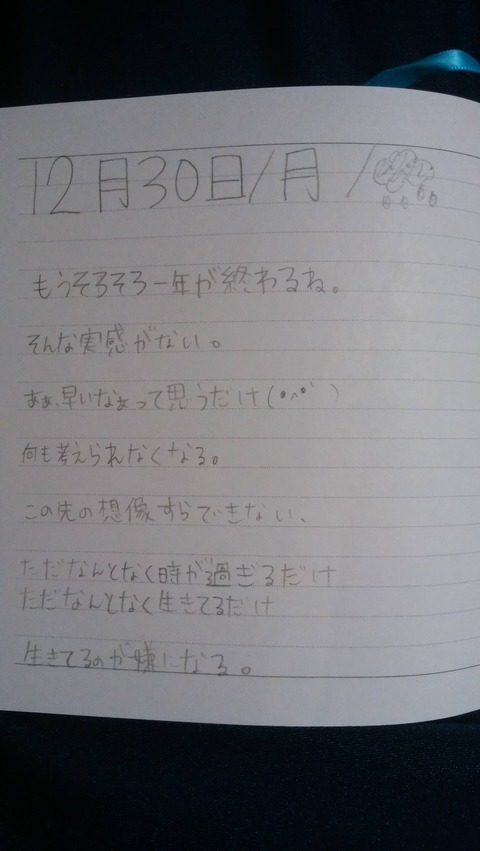 12月30日/月/
もうそろそろ一年が終わるね。
そんな実感がない。
あぁ、早いなぁって思うだけ(•^•゛)
何も考えられなくなる。
この先の想像すらできない、
ただなんとなく時が過ぎるだけ
ただなんとなく生きてるだけ
生きてるのが嫌になる。